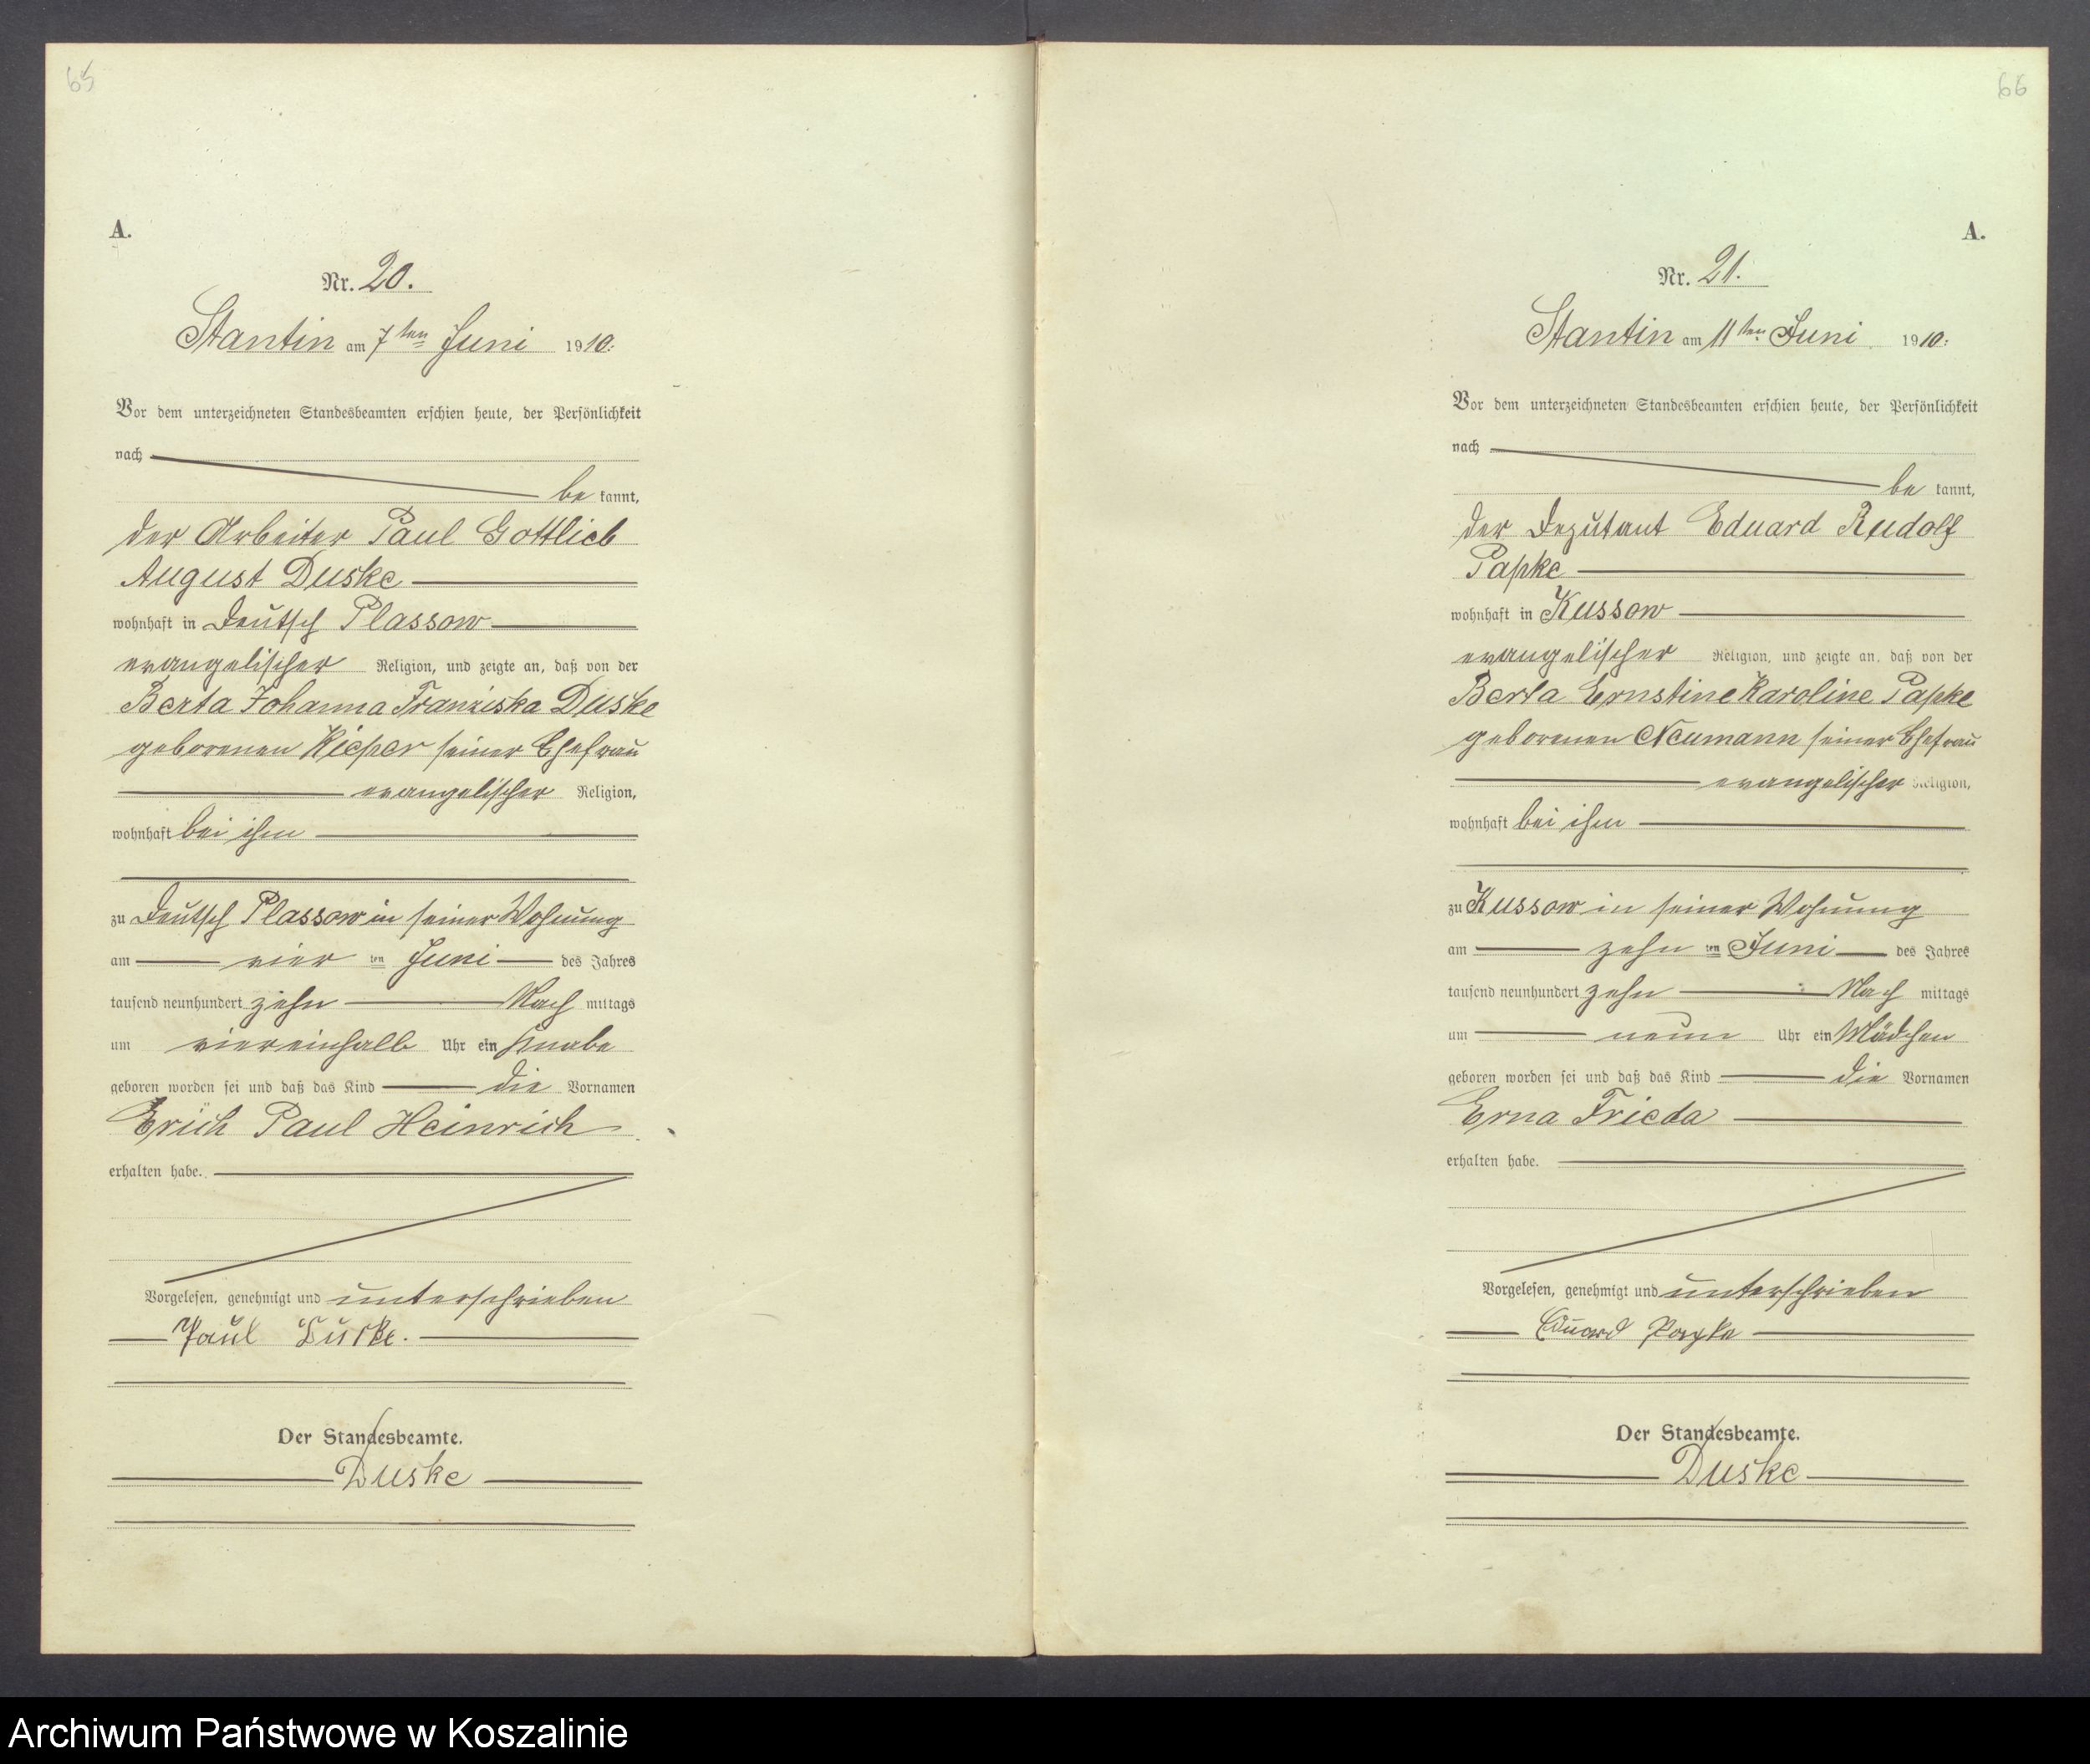 65
A.
Nr. 20.
Stantin am 7ten Juni 1910.
Vor dem unterzeichneten Standesbeamten erschien heute, der Persönlichkeit
nach
be kannt,
der Arbeiter Paul Gottlieb
August Duske
wohnhaft in Deutsch Plassow
evangelischer Religion, und zeigte an, daß von der
Berta Johanna Franziska Duske
geborenen Kieper seiner Ehefrau
evangelischer Religion,
wohnhaft bei ihm
zu Deutsch Plassow in seiner Wohnung
am vier ten Juni des Jahres
tausend neunhundert zehn Nach mittags
um viereinhalb Uhr ein Knabe
geboren worden sei und daß das Kind die Vornamen
Erich Paul Heinrich
erhalten habe.
Vorgelesen, genehmigt und unterschrieben
Paul Duske.
Der Standesbeamte.
Duske
66
A.
Nr. 21.
Stantin am 11ten Juni 1910.
Vor dem unterzeichneten Standesbeamten erschien heute, der Persönlichkeit
nach
be kannt,
der Deputant Eduard Rudolf
Papke
wohnhaft in Kussow
evangelischer Religion, und zeigte an, daß von der
Berta Ernstine Karoline Papke
geborenen Neumann seiner Ehefrau
evangelischer Religion,
wohnhaft bei ihm
zu Kussow in seiner Wohnung
am zehn ten Juni des Jahres
tausend neunhundert zehn Nach mittags
um neun Uhr ein Mädchen
geboren worden sei und daß das Kind die Vornamen
Erna Frieda
erhalten habe.
Vorgelesen, genehmigt und unterschrieben
Eduard Papke
Der Standesbeamte.
Duske
Archiwum Państwowe w Koszalinie